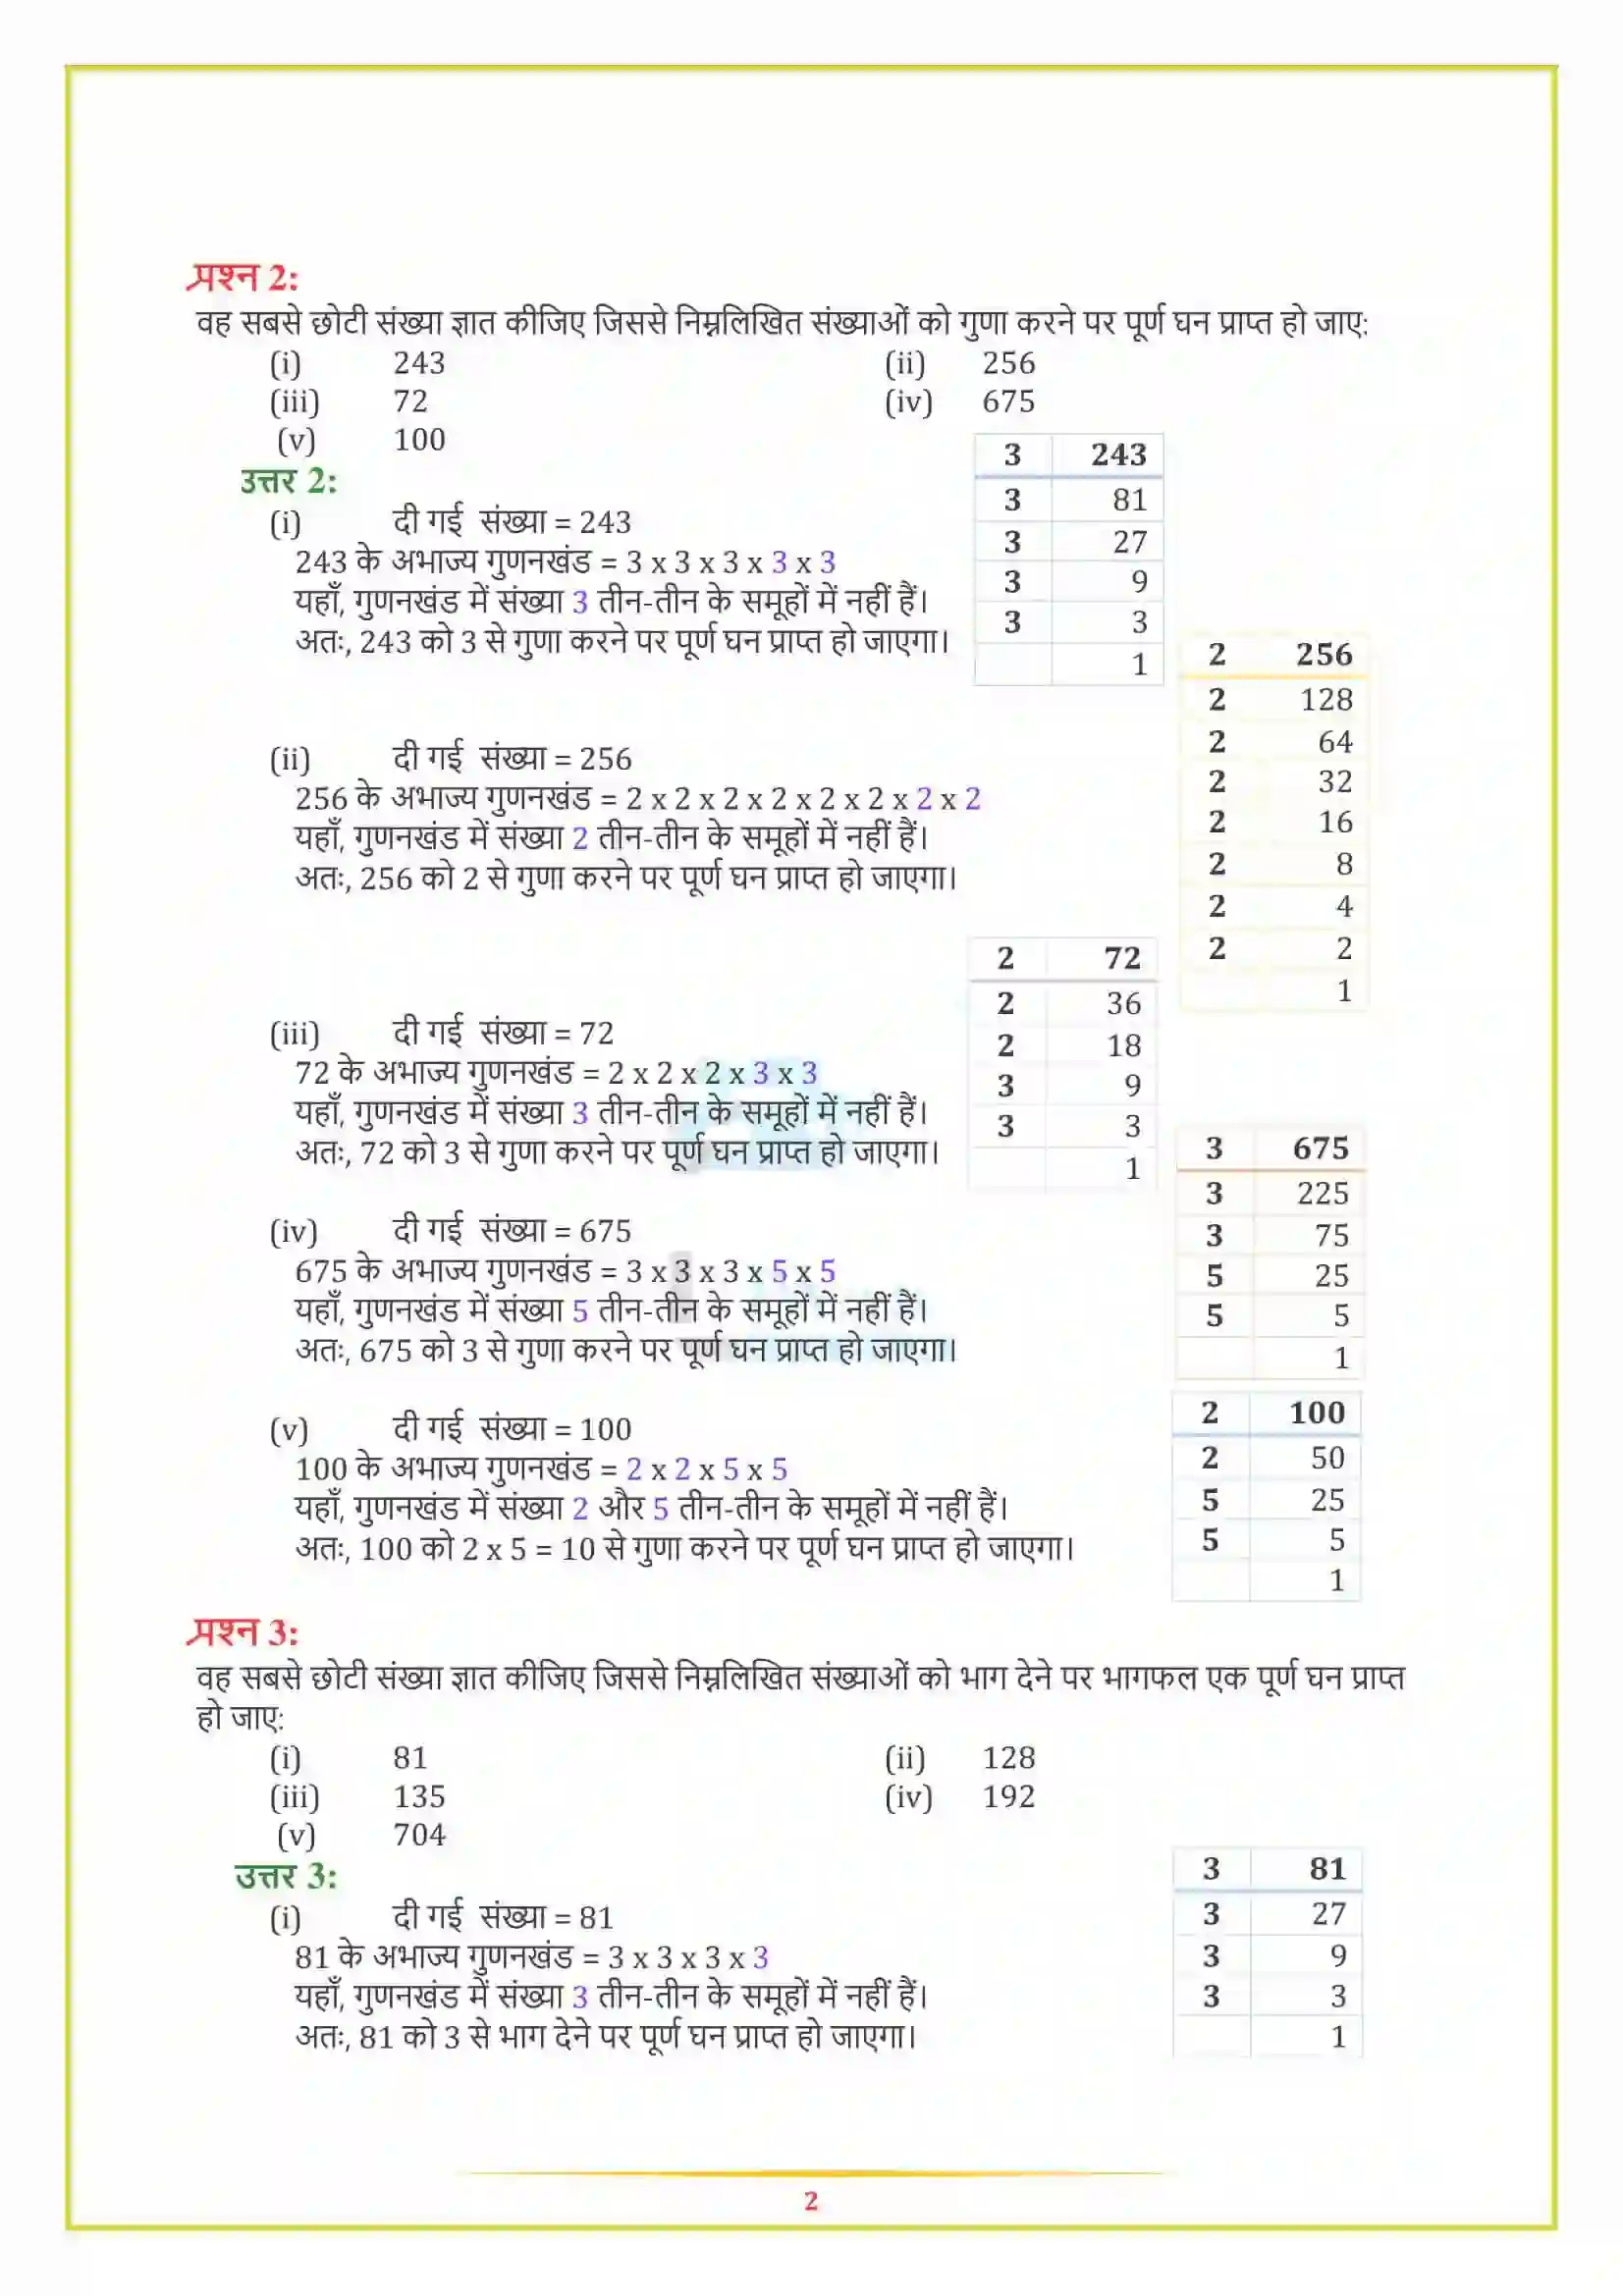 प्रश्न 2:
वह सबसे छोटी संख्या ज्ञात कीजिए जिससे निम्नलिखित संख्याओं को गुणा करने पर पूर्ण घन प्राप्त हो जाए:
(i) 243 (ii) 256
(iii) 72 (iv) 675
(v) 100
उत्तर 2:
(i) दी गई संख्या = 243
243 के अभाज्य गुणनखंड = 3 x 3 x 3 x 3 x 3
यहाँ, गुणनखंड में संख्या 3 तीन-तीन के समूहों में नहीं हैं।
अतः, 243 को 3 से गुणा करने पर पूर्ण घन प्राप्त हो जाएगा।
3 243
3 81
3 27
3 9
3 3
1
(ii) दी गई संख्या = 256
256 के अभाज्य गुणनखंड = 2 x 2 x 2 x 2 x 2 x 2 x 2 x 2
यहाँ, गुणनखंड में संख्या 2 तीन-तीन के समूहों में नहीं हैं।
अतः, 256 को 2 से गुणा करने पर पूर्ण घन प्राप्त हो जाएगा।
2 256
2 128
2 64
2 32
2 16
2 8
2 4
2 2
1
(iii) दी गई संख्या = 72
72 के अभाज्य गुणनखंड = 2 x 2 x 2 x 3 x 3
यहाँ, गुणनखंड में संख्या 3 तीन-तीन के समूहों में नहीं हैं।
अतः, 72 को 3 से गुणा करने पर पूर्ण घन प्राप्त हो जाएगा।
2 72
2 36
2 18
3 9
3 3
1
(iv) दी गई संख्या = 675
675 के अभाज्य गुणनखंड = 3 x 3 x 3 x 5 x 5
यहाँ, गुणनखंड में संख्या 5 तीन-तीन के समूहों में नहीं हैं।
अतः, 675 को 3 से गुणा करने पर पूर्ण घन प्राप्त हो जाएगा।
3 675
3 225
3 75
5 25
5 5
1
(v) दी गई संख्या = 100
100 के अभाज्य गुणनखंड = 2 x 2 x 5 x 5
यहाँ, गुणनखंड में संख्या 2 और 5 तीन-तीन के समूहों में नहीं हैं।
अतः, 100 को 2 x 5 = 10 से गुणा करने पर पूर्ण घन प्राप्त हो जाएगा।
2 100
2 50
5 25
5 5
1
प्रश्न 3:
वह सबसे छोटी संख्या ज्ञात कीजिए जिससे निम्नलिखित संख्याओं को भाग देने पर भागफल एक पूर्ण घन प्राप्त
हो जाए:
(i) 81 (ii) 128
(iii) 135 (iv) 192
(v) 704
उत्तर 3:
(i) दी गई संख्या = 81
81 के अभाज्य गुणनखंड = 3 x 3 x 3 x 3
यहाँ, गुणनखंड में संख्या 3 तीन-तीन के समूहों में नहीं हैं।
अतः, 81 को 3 से भाग देने पर पूर्ण घन प्राप्त हो जाएगा।
3 81
3 27
3 9
3 3
1
2